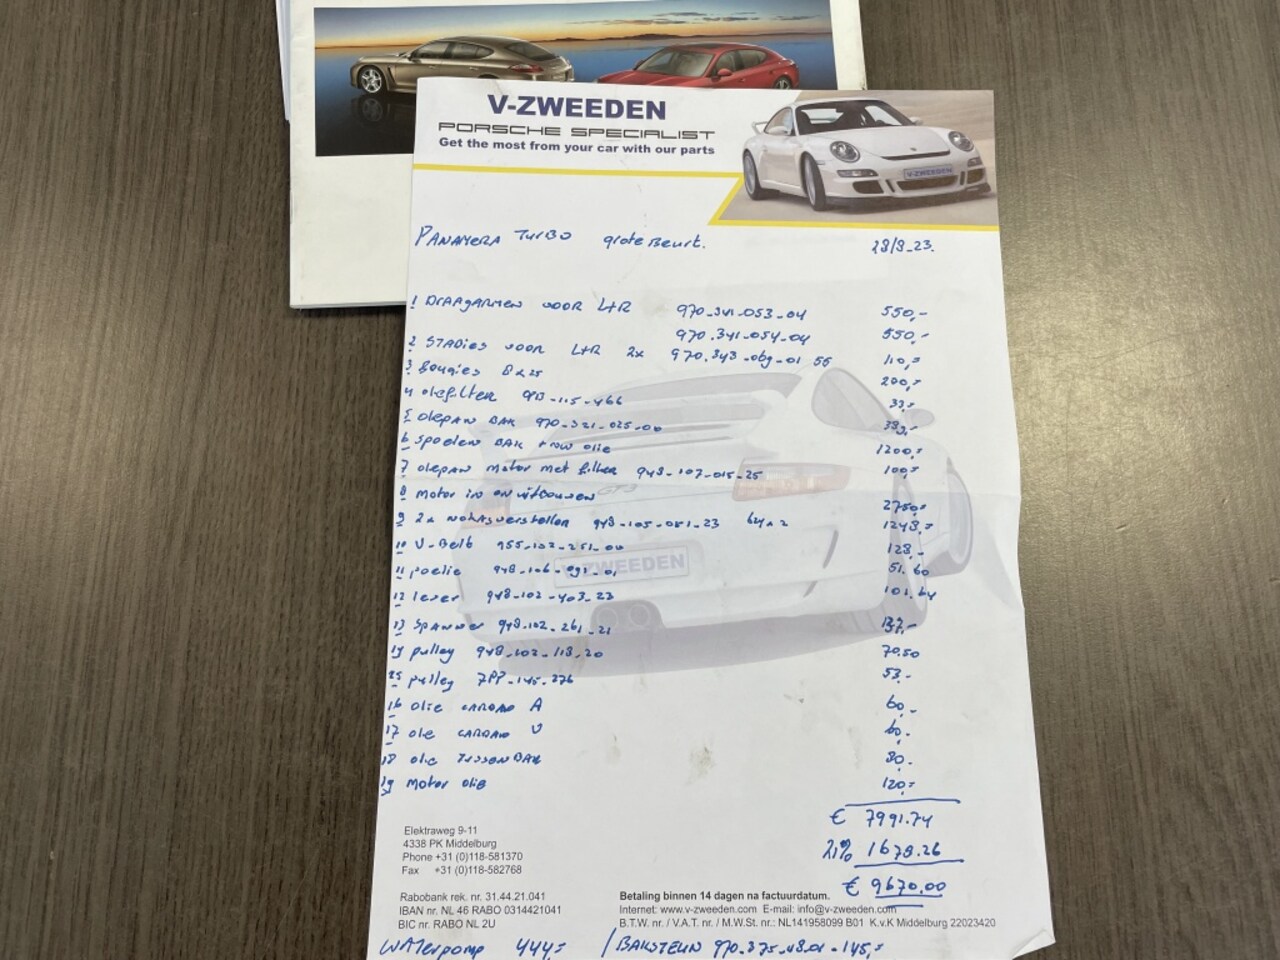 V-ZWEEDEN
PORSCHE SPECIALIST
Get the most from your car with our parts
V-ZWEEDEN
PANAMERA TURBO grote Beurt. 28/8-23.
1 DRAAGARMEN VOOR L+R 970-341-053-04 550,-
970.341-054-04 550,-
2 STABIES VOOR L+R 2x 970.343-069-01 55 110,=
3 Bougies 8x25 200,=
4 Oliefilter 9A-115-466 33,-
5 Oliepan BAK 970-321-025-00 389,-
6 Spoelen BAK + nw olie 1200,=
7 oliepan motor met filter 948-107-015-25 100,=
8 Motor in en uitbouwen 2750=
9 2x nokasverstellen 948-105-051-23 624x2 1248,=
10 V-Belt 955-102-251-00 128,-
11 poelie 948-106-091-01 51.60
12 lever 948-102-403-23 101.64
13 Spanner 948.102-261-21 137,-
14 pulley 948-102-118.20 70.50
15 pulley 7PP-145-276 53.-
16 Olie CARDAN A 60,-
17 olie CARDAN V 60.-
18 olie TussenBAK 80.-
19 Motor olie 120,=
€ 7991.74
21% 1678.26
€ 9670.00
V-ZWEEDEN
Elektraweg 9-11
4338 PK Middelburg
Phone +31 (0)118-581370
Fax +31 (0)118-582768
Rabobank rek. nr. 31.44.21.041
IBAN nr. NL 46 RABO 0314421041
BIC nr. RABO NL 2U
Betaling binnen 14 dagen na factuurdatum.
Internet: www.v-zweeden.com E-mail: info@v-zweeden.com
B.T.W. nr. / V.A.T. nr. / M.W.St. nr.: NL141958099 B01 K.v.K Middelburg 22023420
WATERpomp 444,= / BAKSTEUN 970.375-48.01 - 145,=